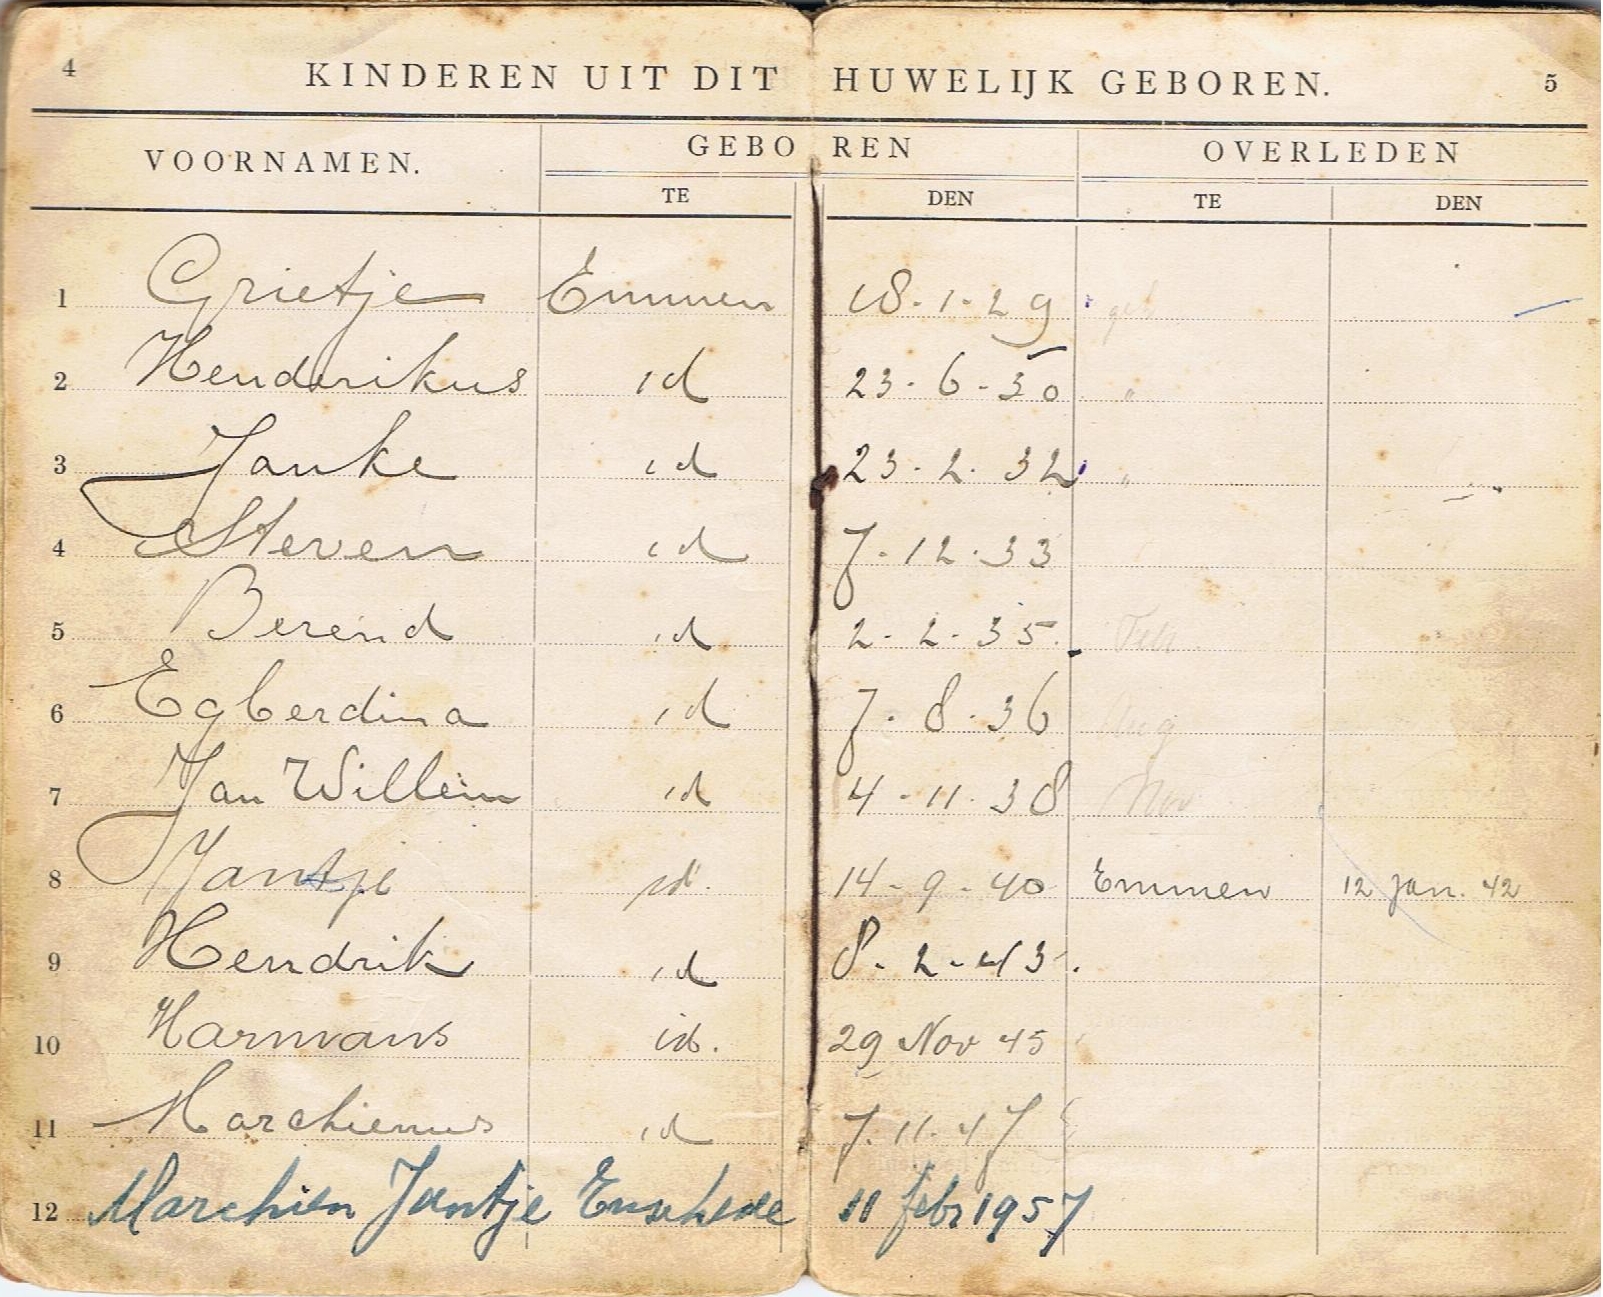 4 KINDEREN UIT DIT HUWELIJK GEBOREN. 5
VOORNAMEN. GEBOREN OVERLEDEN
TE DEN TE DEN
1 Grietje Emmen 18-1-29 geb
2 Hendrikus id 23-6-30 "
3 Janke id 23-2-32 "
4 Steven id 7-12-33
5 Berend id 2-2-35. Feb
6 Egberdina id 7-8-36 Aug
7 Jan Willem id 4-11-38 Nov
8 Jantje id. 14-9-40 Emmen 12 Jan. 42
9 Hendrik id 8-2-43.
10 Harmans id. 29 Nov 45
11 Marchienus id 7-11-47
12 Marchien Jantje Enschede 11 febr 1957